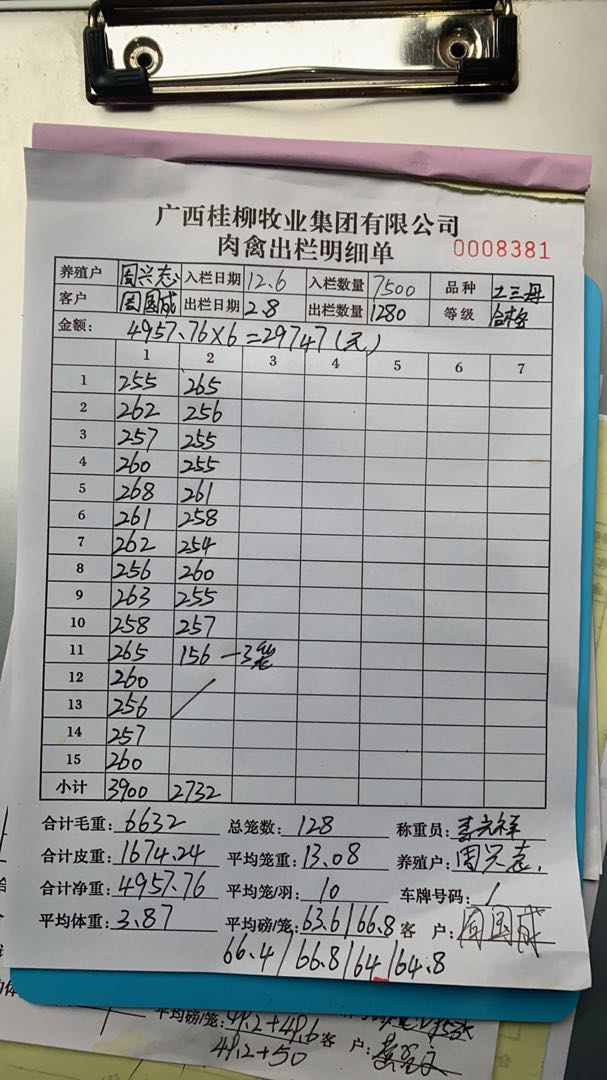 广西桂柳牧业集团有限公司
肉禽出栏明细单 0008381
养殖户 周兴志 入栏日期 12.6 入栏数量 7500 品种 土三丹
客户 周国成 出栏日期 2.8 出栏数量 1280 等级 合格
金额: 4957.76×6=29747(元)
1 2 3 4 5 6 7
1 255 265
2 262 256
3 257 255
4 260 255
5 268 261
6 261 258
7 262 254
8 256 260
9 263 255
10 258 257
11 265 156 一3笼
12 260
13 256
14 257
15 260
小计 3900 2732
合计毛重: 6632 总笼数: 128 称重员:
合计皮重: 1674.24 平均笼重: 13.08 养殖户: 周兴志.
合计净重: 4957.76 平均笼/羽: 10 车牌号码: /
平均体重: 3.87 平均磅/笼: 63.6/66.8 客 户: 周国成
66.4/66.8/64/64.8
平均磅/笼: 49.2+49.6 客 户:
49.2+50